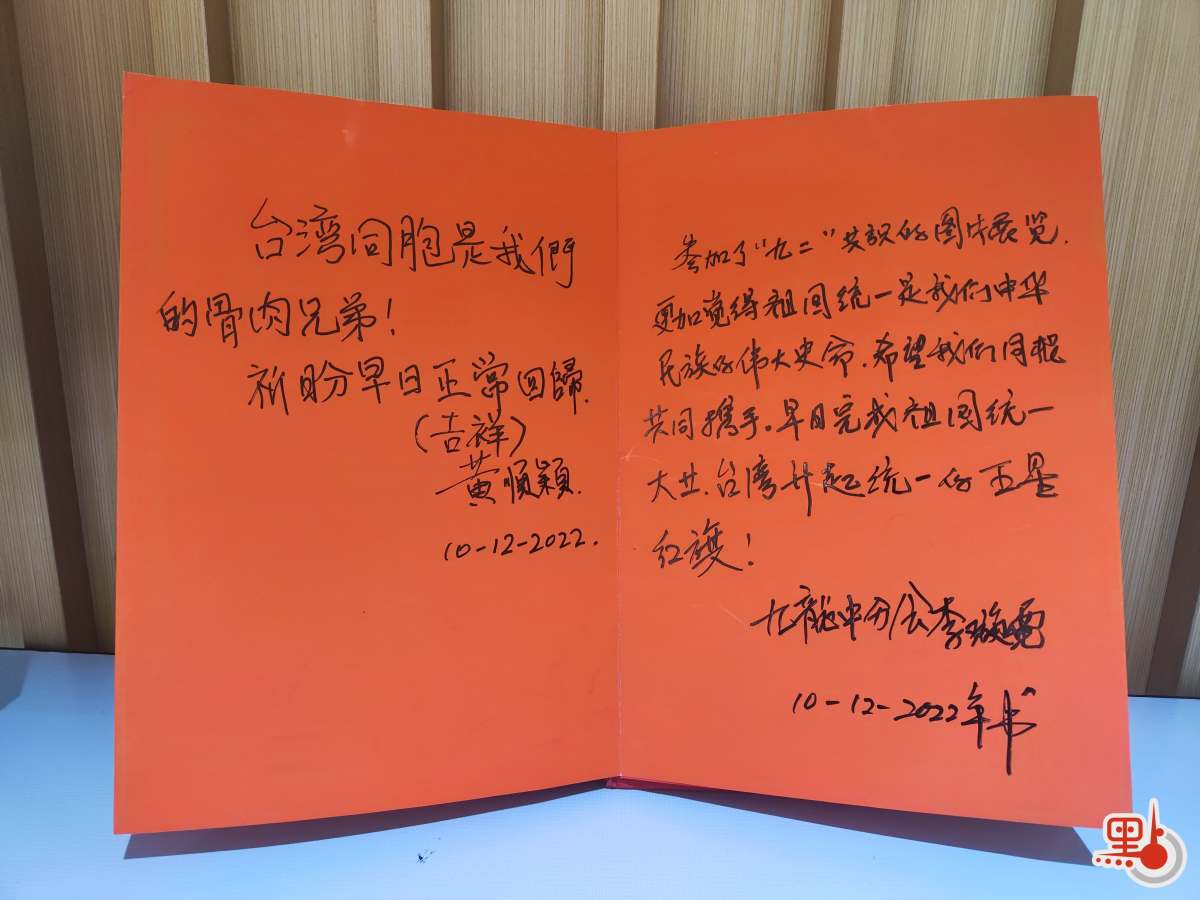 台湾同胞是我們
的骨肉兄弟！
祈盼早日正常回歸.
(吉祥)
黄順穎.
10-12-2022.
参加了“九二”共识的图片展览.
更加觉得祖国统一是我们中华
民族的伟大史命.希望我们同胞
共同携手。早日完成祖国统一
大业.台湾升起统一的五星
红旗！
九龍中分会李璇
10-12-2022年书
點